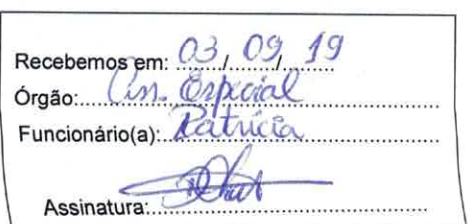 Recebemos em: 03, 09, 19
Órgão: Ass. Especial
Funcionário(a): Patrícia
Assinatura: